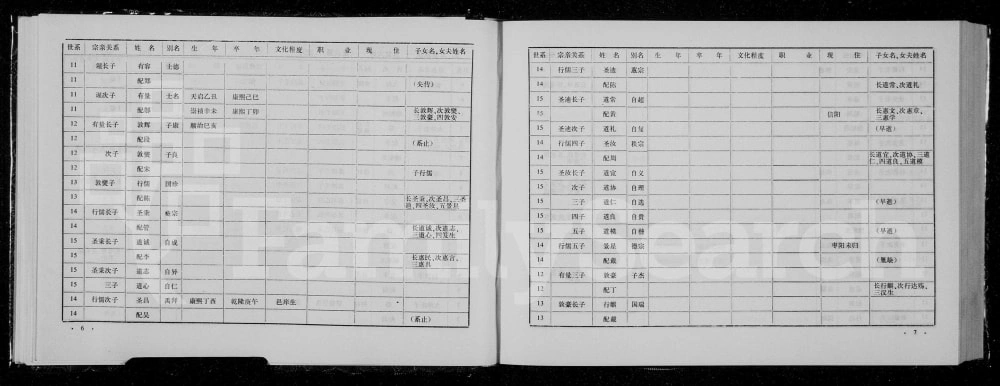 世系 宗亲关系 姓 名 别名 生 年 卒 年 文化程度 职 业 现 住 子女名,女夫姓名
11 长子 有容 士德
11 配郑 (失传)
11 次子 有量 士名 天启乙丑 康熙己巳
11 崇祯辛未 康熙丁卯 长敦辉,次敦燮,三敦豪,四敦安
12 有量长子 敦辉 子谢 顺治己亥
12 配段 (系止)
12 次子 敦燮 子良
12 配宋 子行儒
13 敦燮子 行儒 国珍
13 配陈 长圣秉,次圣昌,三圣迪,四圣汝,五景星
14 行儒长子 圣秉 雍宗
14 配管 长道诚,次道志,三道心,四发生
15 圣秉长子 道诚 自成
15 配李 长惠民,次惠言,三惠具
15 圣秉次子 道志 自异
15 三子 道心 自仁
14 行儒次子 圣昌 禹拜 康熙丁酉 乾隆庚午 邑庠生
14 配吴 (系止)
· 6 ·
世系 宗亲关系 姓 名 别名 生 年 卒 年 文化程度 职 业 现 住 子女名,女夫姓名
14 行儒三子 圣迪 惠宗
14 配陈 长道常,次道礼
15 圣迪长子 道常 自超
15 配黄 信阳 长惠文,次惠章,三惠学
15 圣迪次子 道礼 自显 (早逝)
14 行儒四子 圣汝
14 配周 长道宜,次道协,三道仁,四道良,五道横
15 圣汝长子 道宜 自义
15 次子 道协 自理
15 三子 道仁 自选 (早逝)
15 四子 道良 自贵
15 五子 自修 (早逝)
14 行儒五子 景星 德宗 枣阳未归
14 配戴
12 有量三子 敦豪 子杰
12 配丁 三汉生
13 敦豪长子 国瑞
13 配戴
· 7 ·
FamilySearch